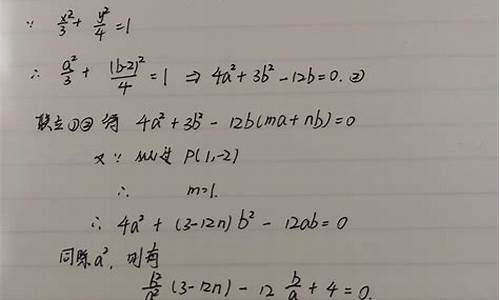 ∵ x²/3 + y²/4 = 1
∴ a²/3 + (b-2)²/4 = 1 ⇒ 4a² + 3b² - 12b = 0. ②
联立①②得 4a² + 3b² - 12b(ma + nb) = 0
又∵ MN过 P(1,-2)
∴ m=1.
∴ 4a² + (3-12n)b² - 12ab = 0
同除a², 则有
b²/a² (3-12n) - 12 b/a + 4 = 0.